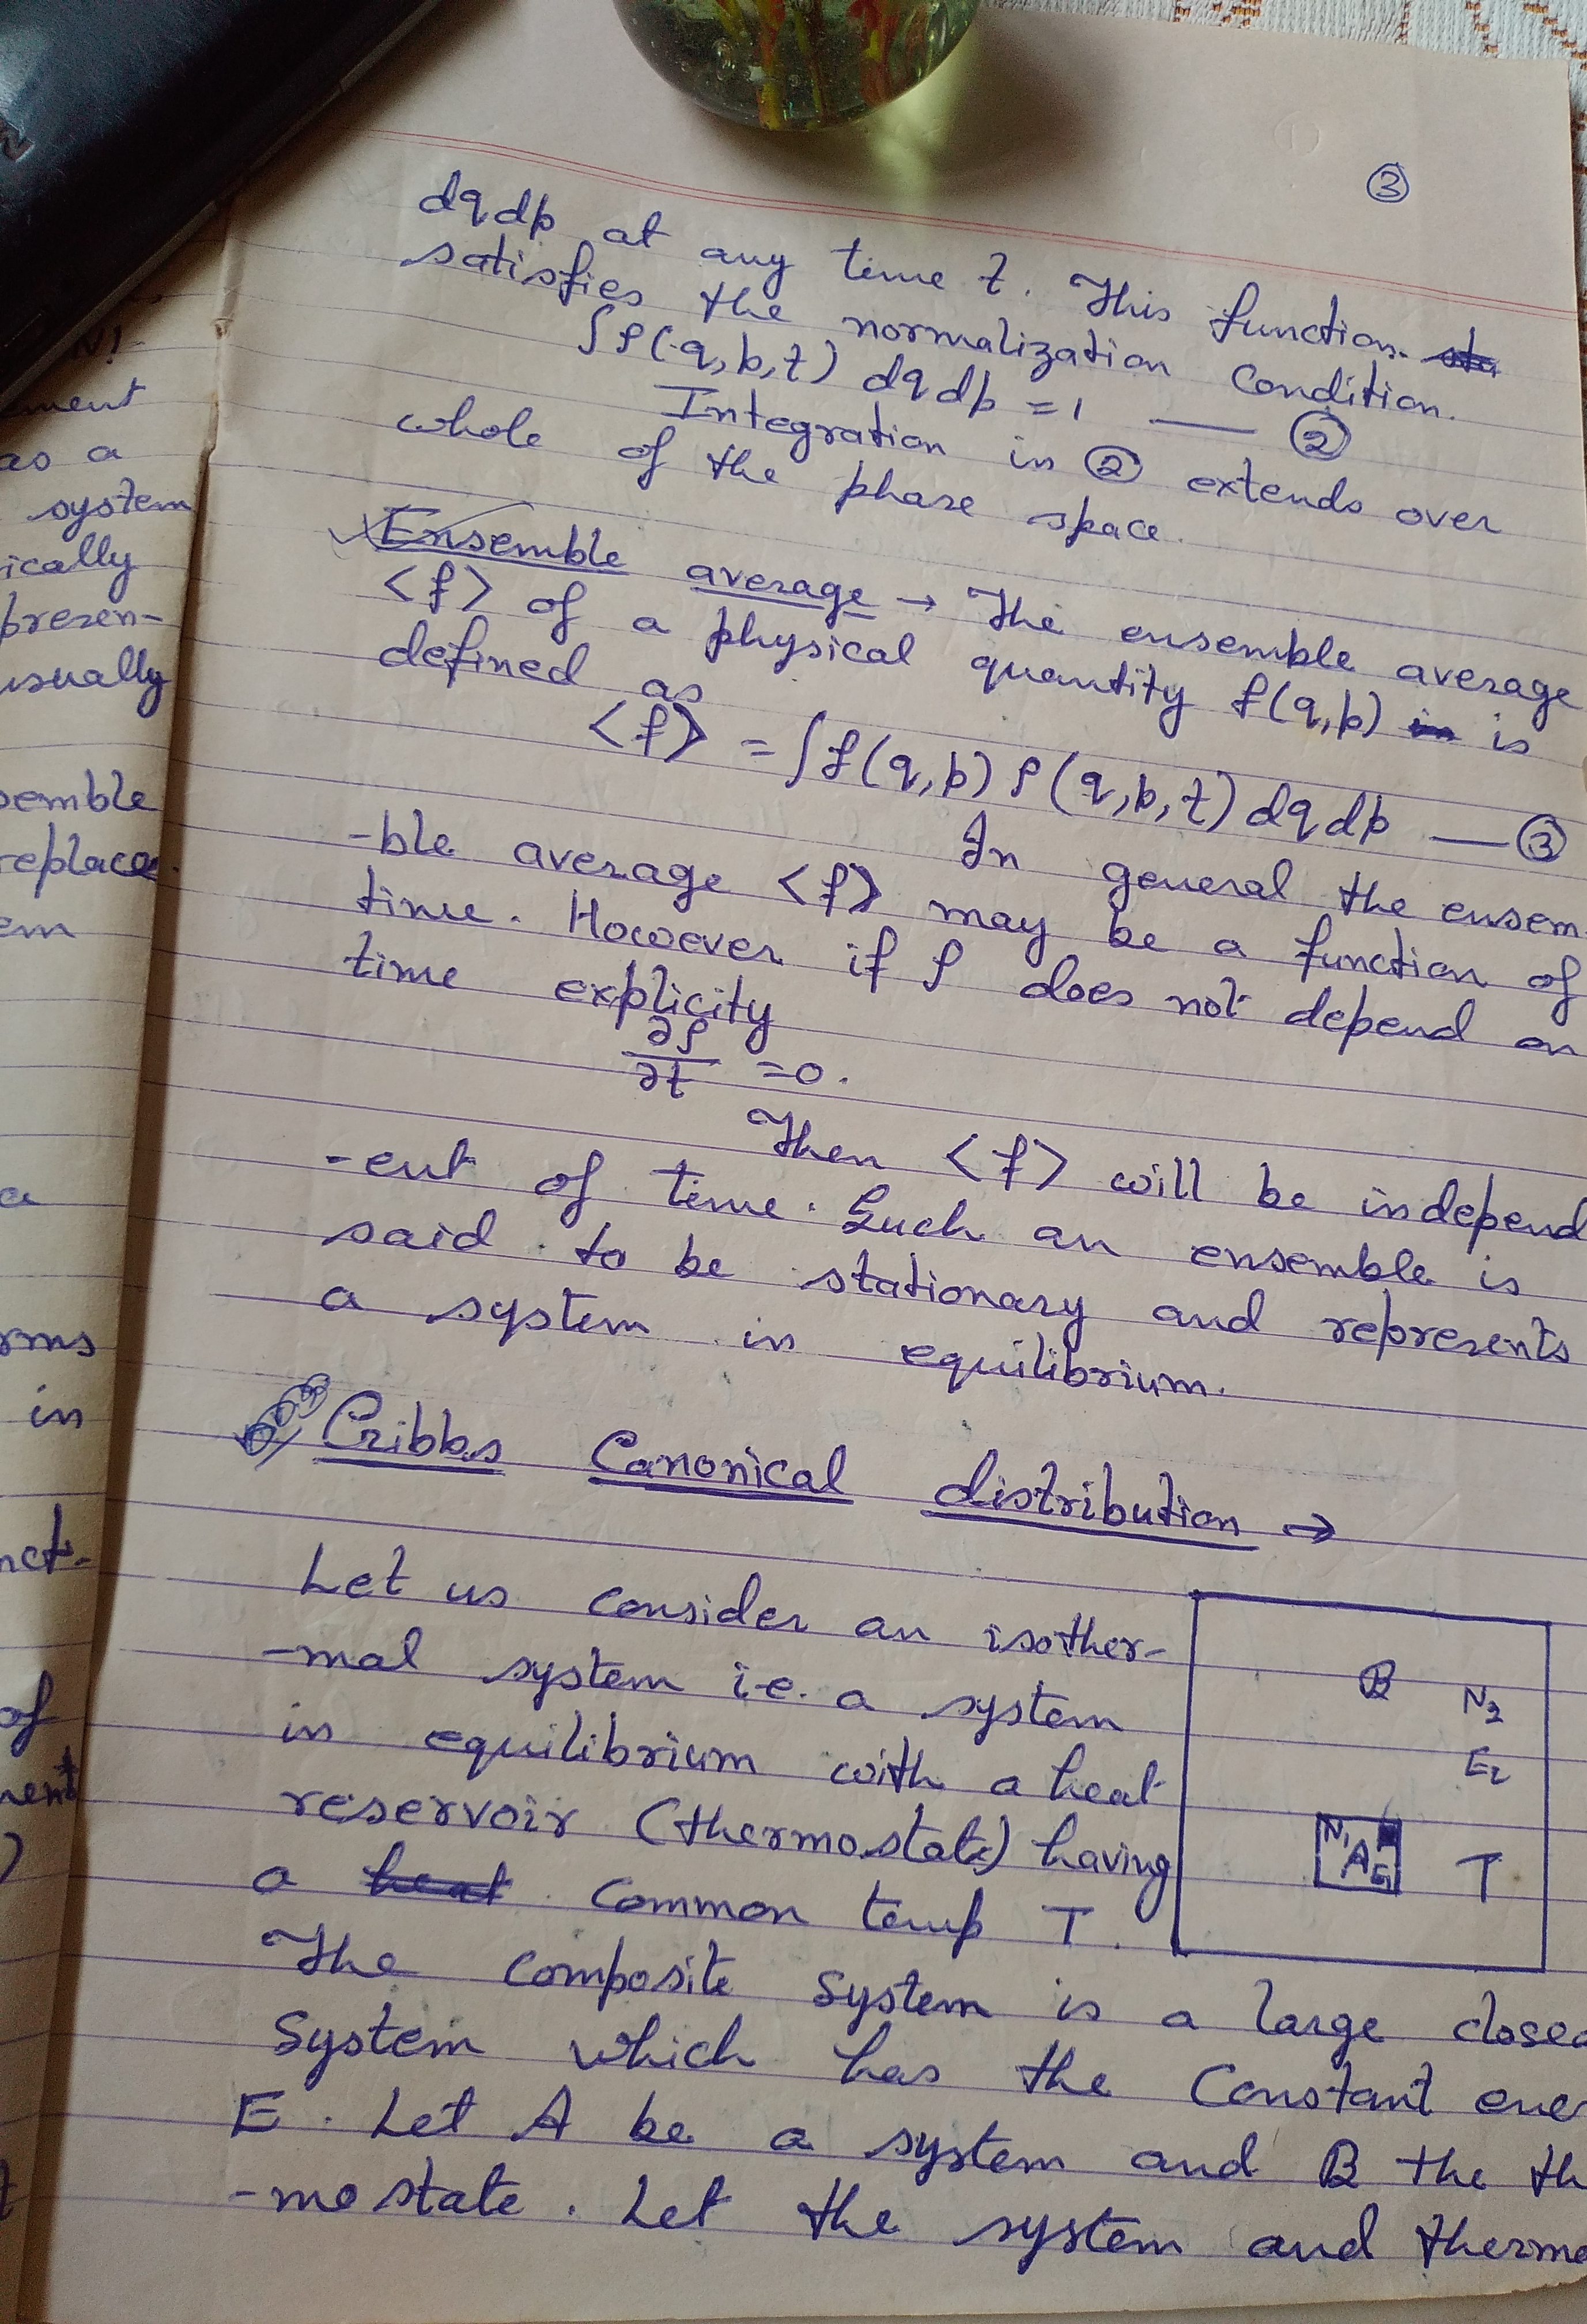 ③
dqdp at any time t. This function
satisfies the normalization Condition.
∫ρ(q,p,t) dqdp =1 — ②
Integration in ② extends over
whole of the phase space.
Ensemble average → The ensemble average
<f> of a physical quantity f(q,p) is
defined as
<f> = ∫f(q,p) ρ(q,p,t) dqdp — ③
In general the ensem-
-ble average <f> may be a function of
time. However if ρ does not depend on
time explicity
∂ρ/∂t =0.
Then <f> will be independ
-ent of time. Such an ensemble is
said to be stationary and represents
a system in equilibrium.
Gibbs Canonical distribution →
Let us consider an isother-
-mal system i.e. a system
in equilibrium with a heat
reservoir (thermostate) having
a heat common temp T.
B
N2
E2
N1
A
E1
T
The composite system is a large closed
System which has the Constant ener
E. Let A be a system and B the th
-mostate. Let the system and thermo
N!
ment
as a
system
ically
presen-
usually
semble
replace
em
a
rms
in
nct-
of
ment
)